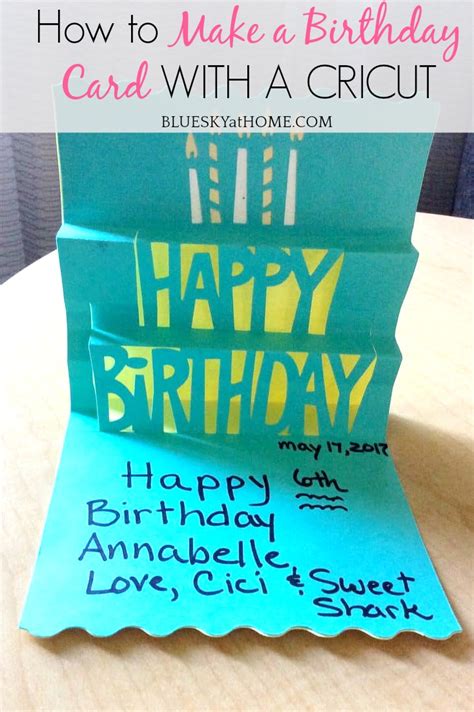 How to Make a Birthday
Card WITH A CRICUT
BLUESKYatHOME.COM
HAPPY
BiRTHDAY
may 17, 2017
Happy 6th
Birthday
Annabelle,
Love, Cici & Sweet
Shark